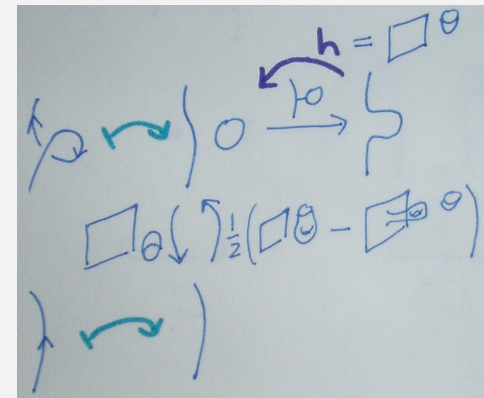 h =
1/2 ( − )